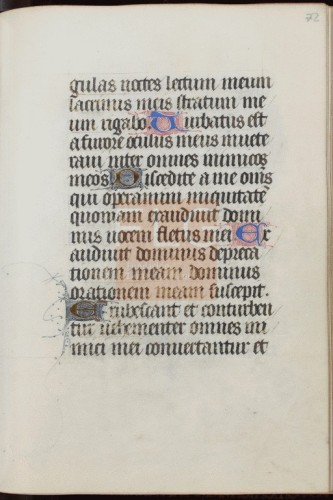 72
gulas noctes lectum meum
lacrimis meis stratum me
um rigabo Turbatus est
a furore oculus meus invete
ravi inter omnes inimicos
meos Discedite a me omnes
qui operamini iniquitatem
quoniam exaudivit domi
nus vocem fletus mei Ex
audivit dominus depreca
tionem meam dominus
orationem meam suscepit.
Erubescant et conturben
tur vehementer omnes ini
mici mei convertantur et